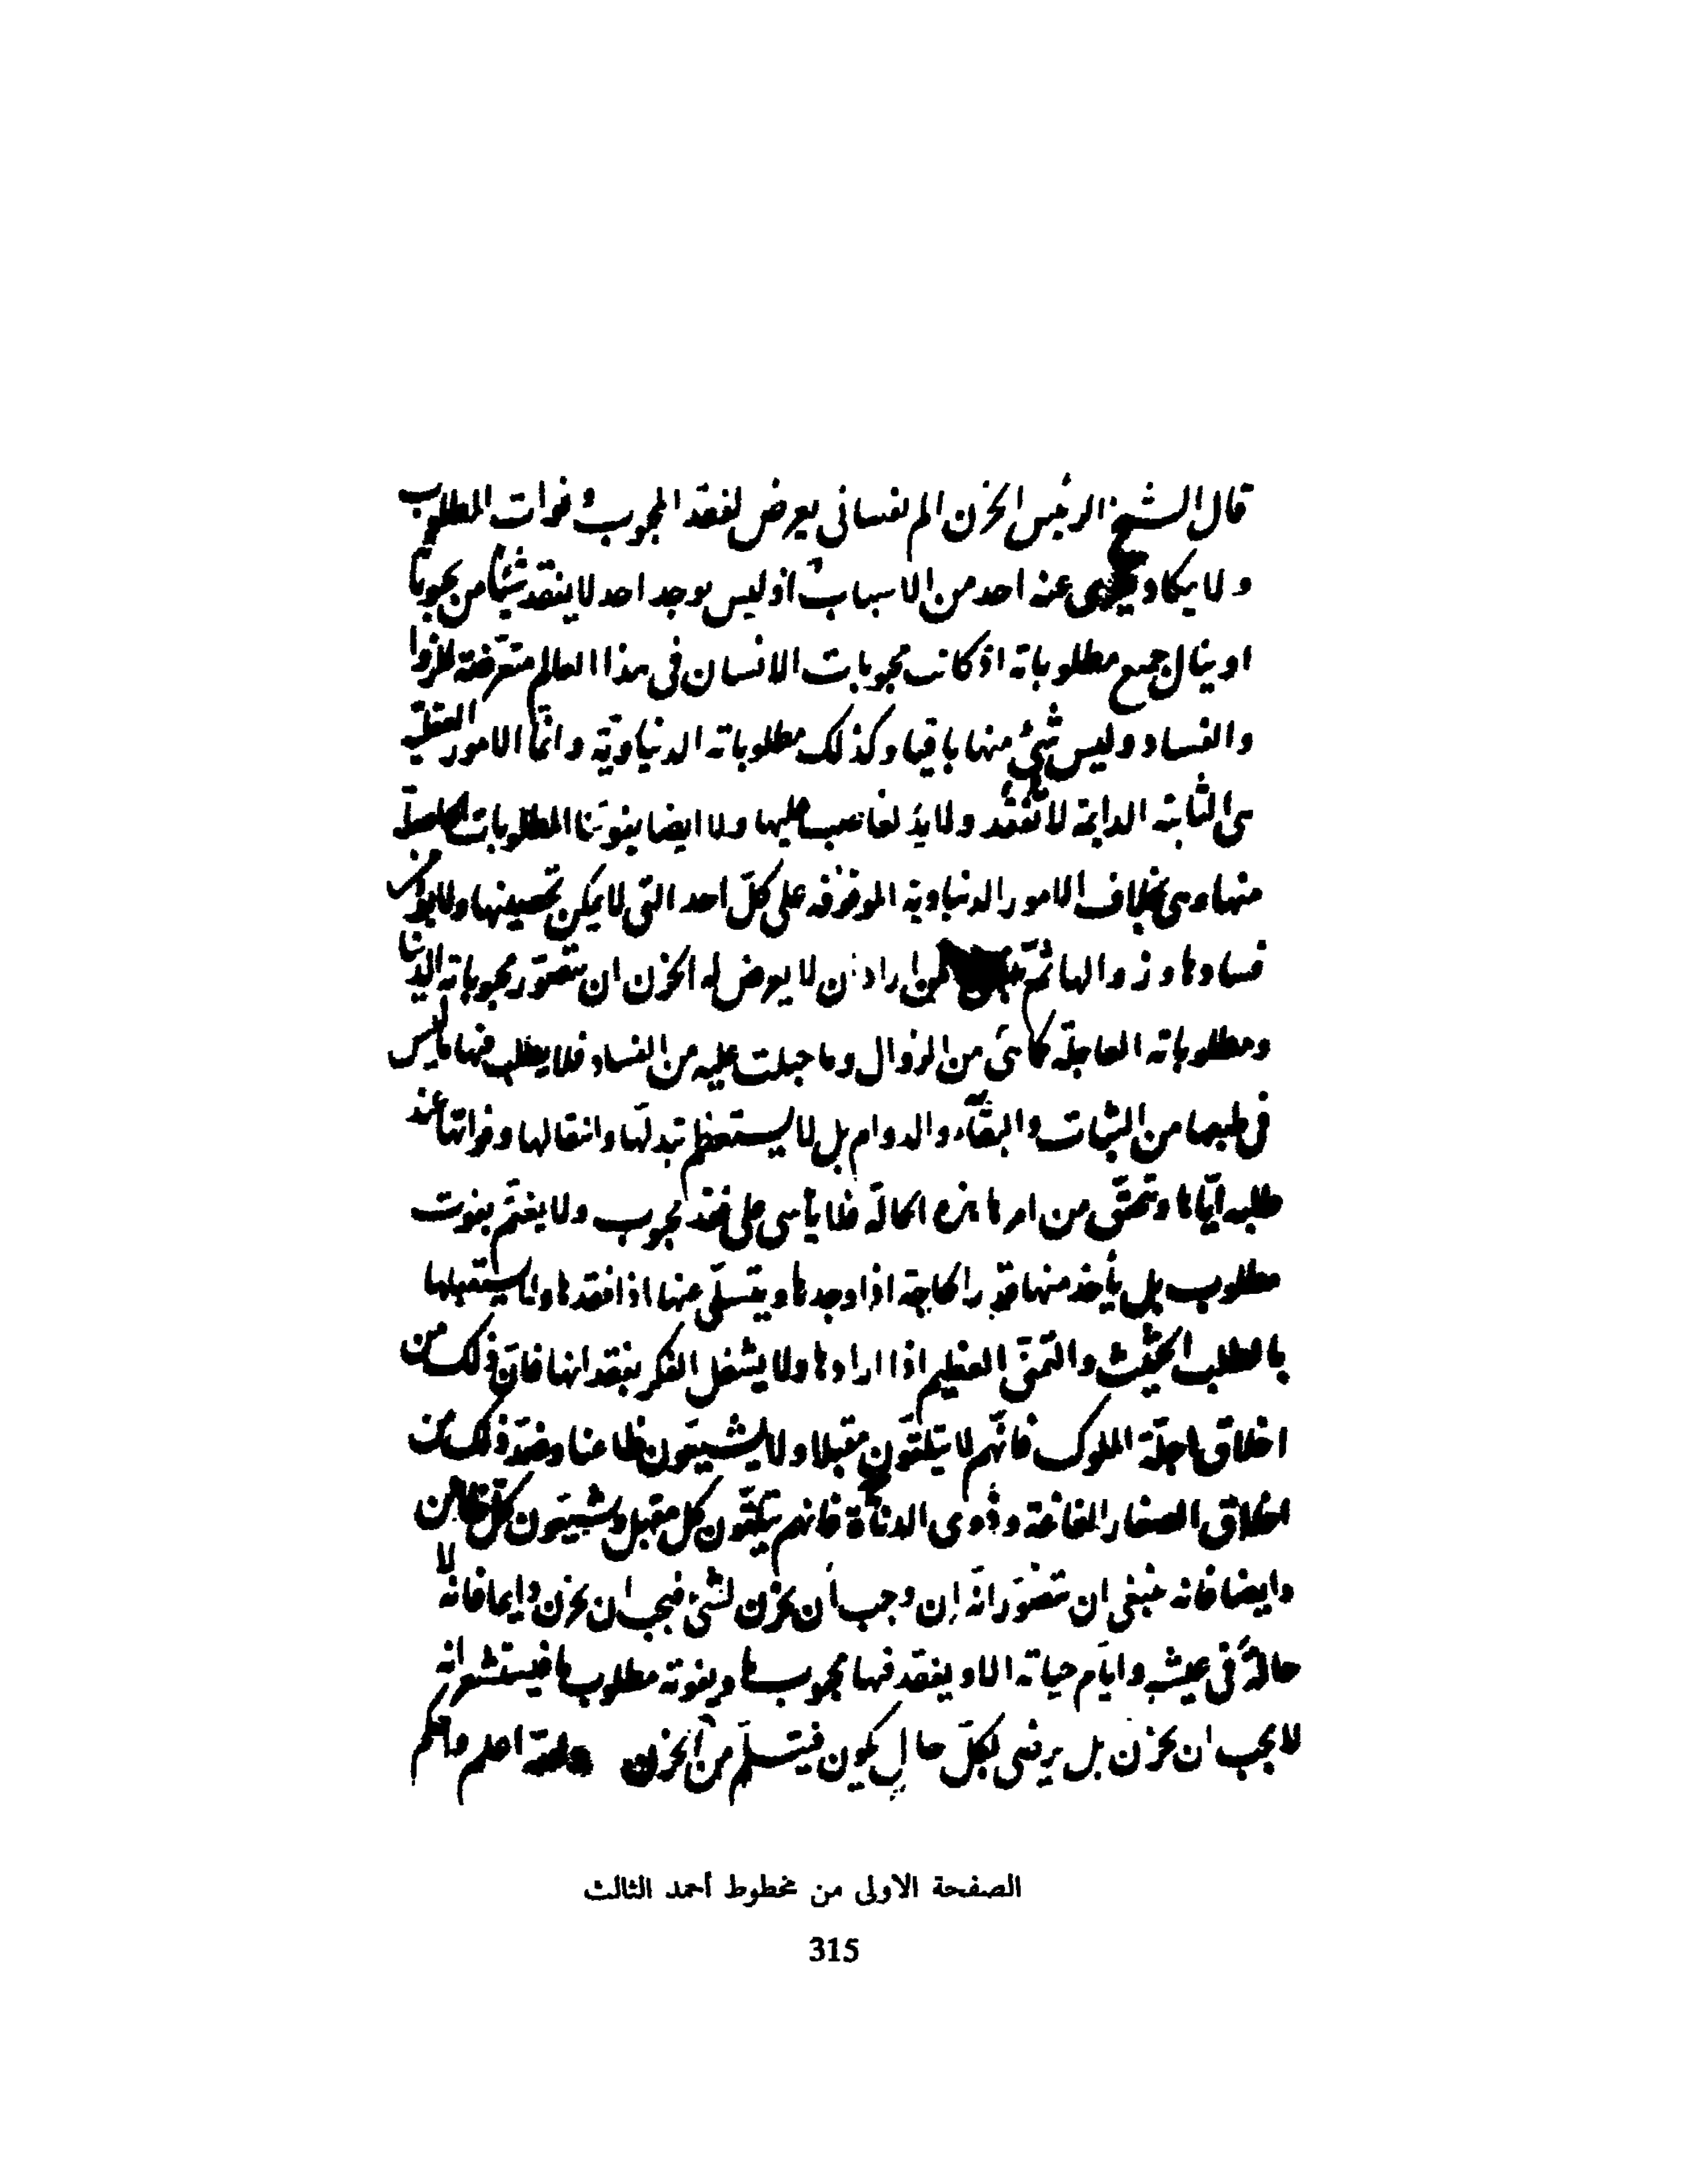 قال الشيخ الرئيس الحزن الم نفسانى يعرض لفقد المحبوب وفوات المطلوب
ولا يكاد يعرى عنه احد من الاسباب اذ ليس يوجد احد لا يفقد شيئا من محبوباته
او ينال جميع مطلوباته اذ كانت محبوبات الانسان فى هذا العالم متعرضة للزوال
والفساد وليس شئ منها باقيا وكذلك مطلوباته الدنياوية وانما الامور العقلية
هى الثابتة الدايمة لا تفقد ولا يد لغاصب عليها ولا ايضا يفوتنا المطلوبات الحاصلة
منها وهى بخلاف الامور الدنياوية الموقوفه على كل احد التى لا يمكن تحصينها ولا يؤمن
فسادها وزوالها ثم من اراد ان لا يعرض له الحزن ان يتصور محبوباته الدنيا
ومطلوباته العاجلة كما هى من الزوال وما جبلت عليه من الفساد فلا يطلب فيها ما ليس
فى طبعها من الثبات والبقاء والدوام بل لا يستعظم تبدلها وانتقالها وفواتها عند
طلبه اياها وتحقق من امرها هذه الحالة فلا يأسى على فقد محبوب ولا يغتم بفوت
مطلوب بل يأخذ منها قدر الحاجة اذا وجدها ويتسلى عنها اذا فقدها ولا يستقبلها
بالطلب الحثيث والتمنى العظيم اذا ارادها ولا يشغل الفكر بفقدانها فان ذلك من
اخلاق اجلة الملوك فانهم لا يتلقون مقبلا ولا يشيعون ظاعنا وضد ذلك من
اخلاق الصغار العامة وذوى الدناءة فانهم يتلقون كل مقبل ويشيعون كل ظاعن
وايضا فانه ينبغى ان يتصور انه ان وجب أن يحزن لشئ فيجب ان يحزن دايما فانه لا
حالة فى عيشه وايام حياته الا ويفقد فيها محبوب ما ويفوته مطلوب ما فيستشعر انه
لا يجب ان يحزن بل يرضى لكل حال يكون فيتسلم من الحزن والله اعلم واحكم
الصفحة الاولى من مخطوط أحمد الثالث
315